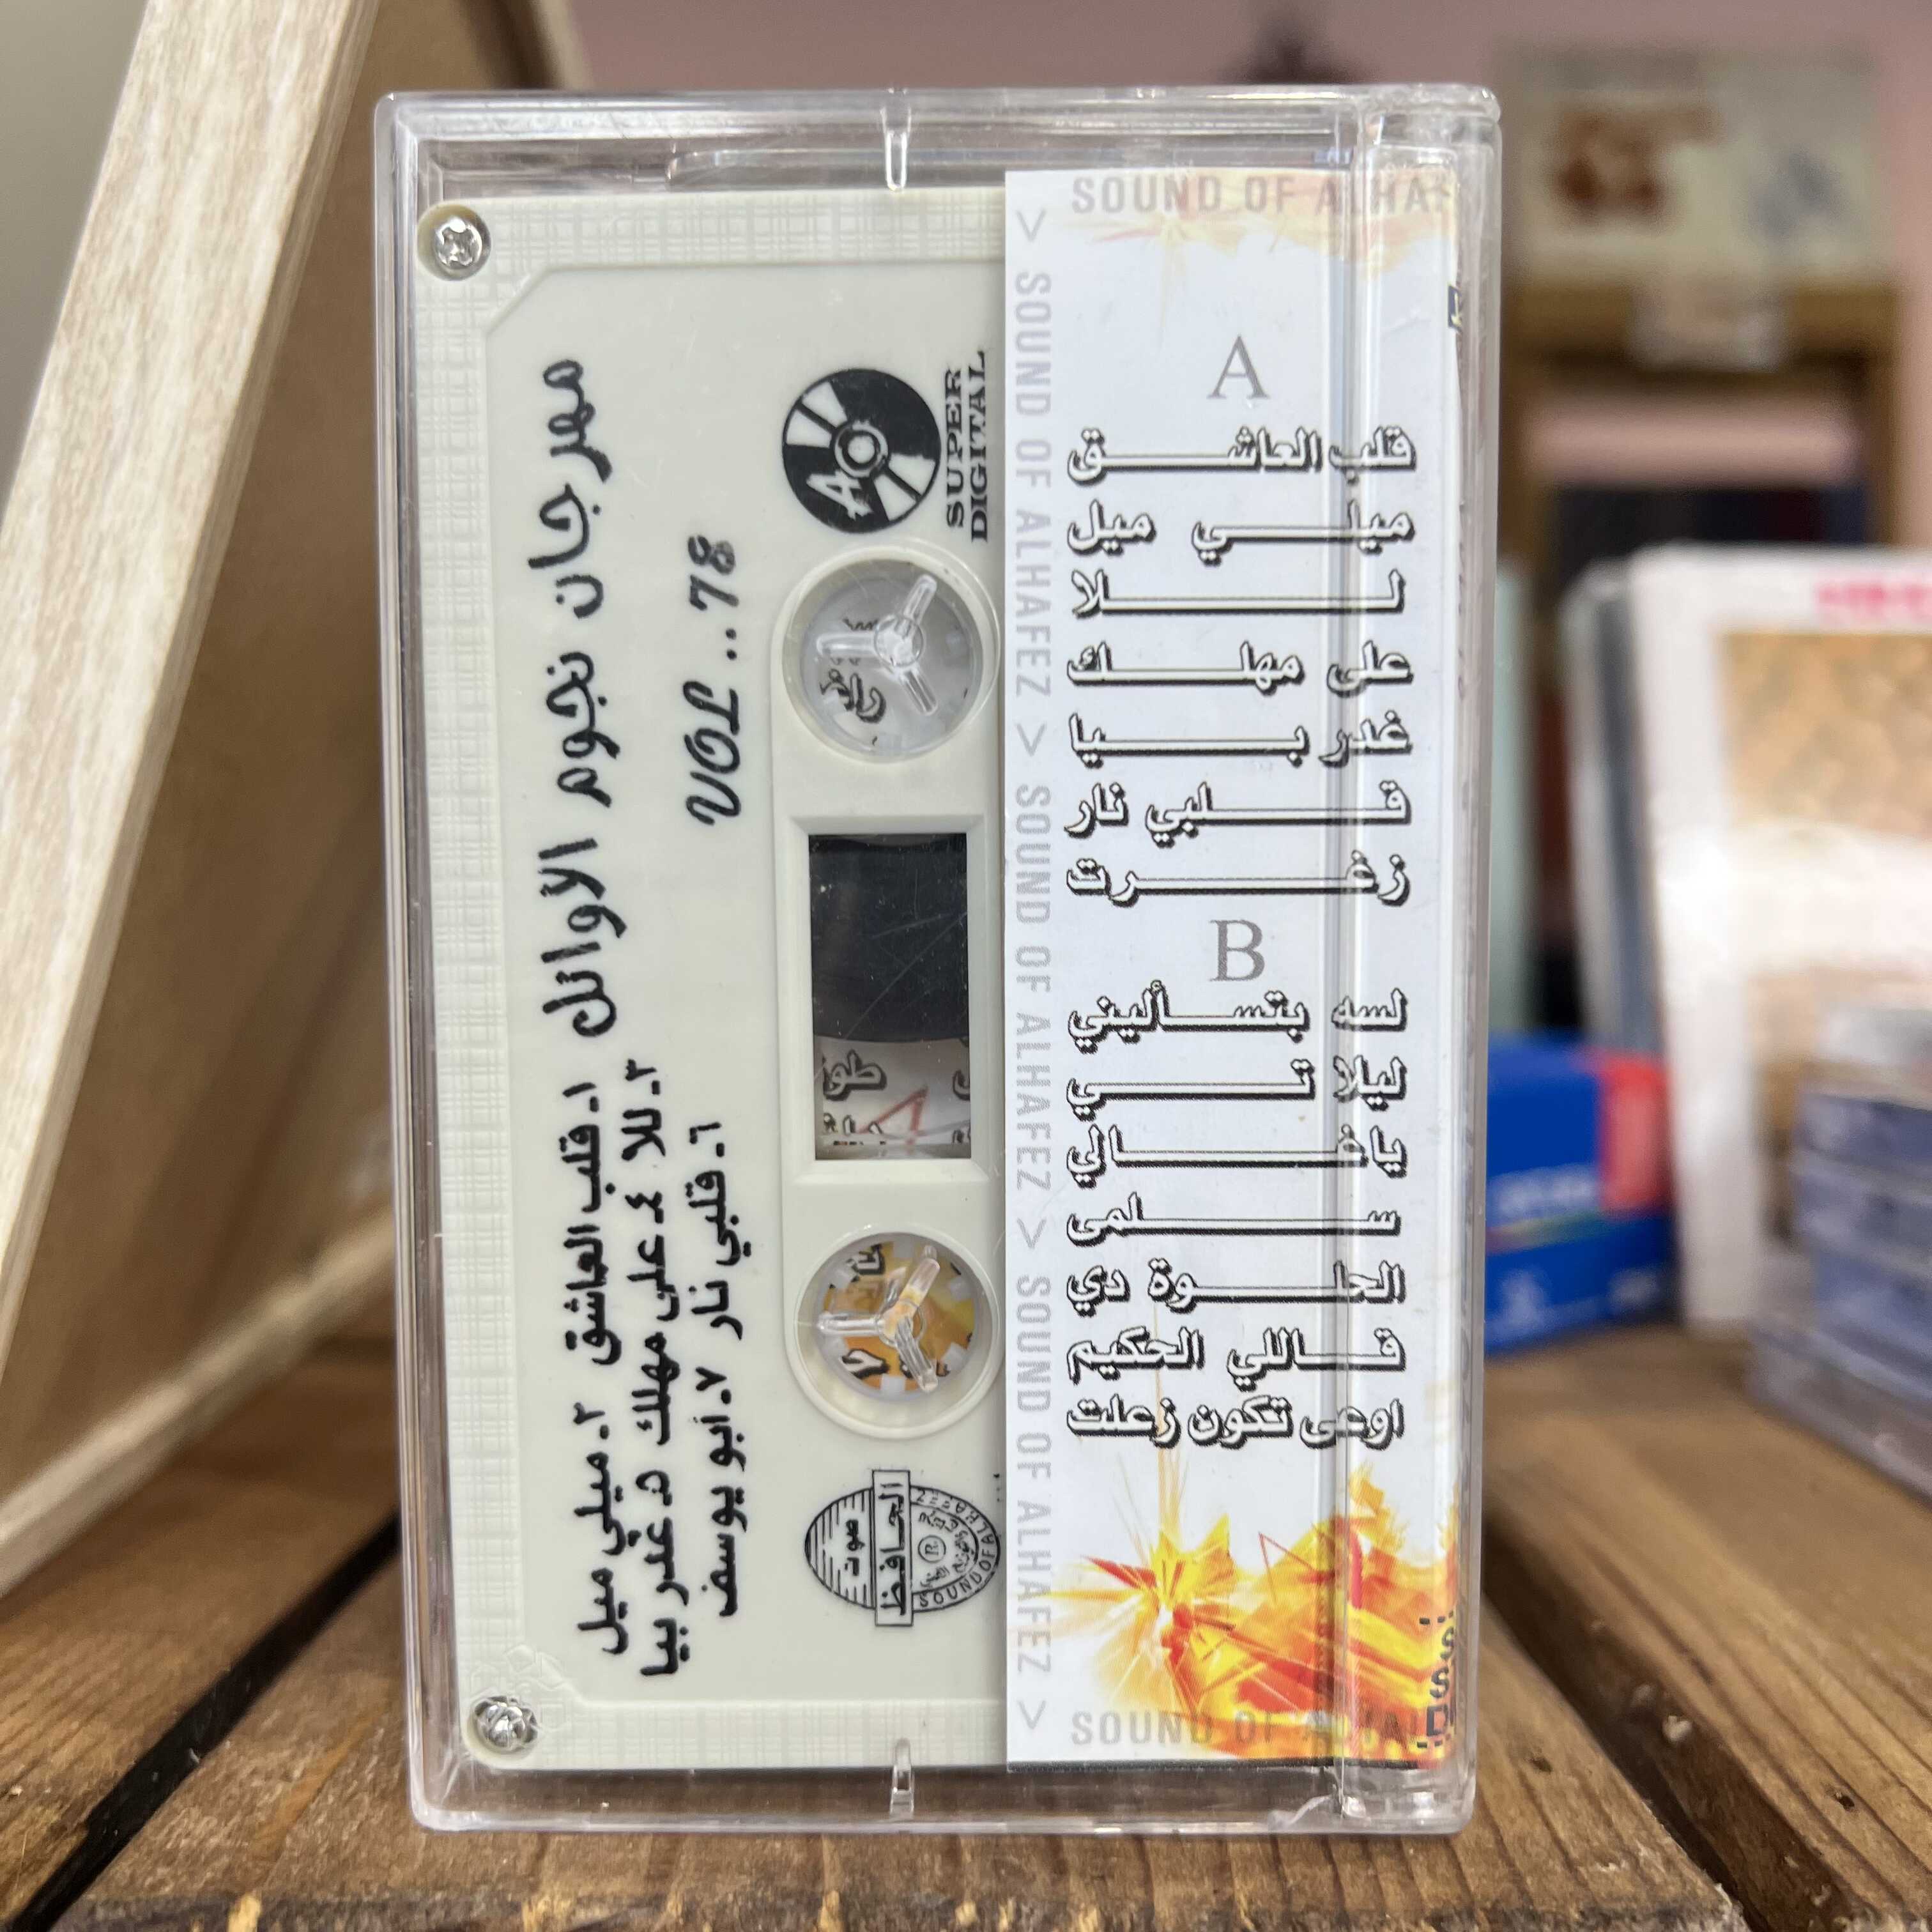 مهرجان نجوم الأوائل
VOL..78
١ـ قلب العاشق ٢ـ ميلي ميل
٣ـ للا ٤ـ على مهلك ٥ـ غدر بيا
٦ـ قلبي نار ٧ـ أبو يوسف
A
SUPER
DIGITAL
صوت
الحافظ
SOUND OF ALHAFEZ
SOUND OF ALHAF
> SOUND OF ALHAFEZ > SOUND OF ALHAFEZ > SOUND OF ALHAFEZ >
A
قلب العاشق
ميلي ميل
للا
على مهلك
غدر بيا
قلبي نار
زغرت
B
لسه بتسأليني
ليلا تي
ياغالي
سلمى
الحلوة دي
قاللي الحكيم
اوعى تكون زعلت
SOUND OF ALHAF